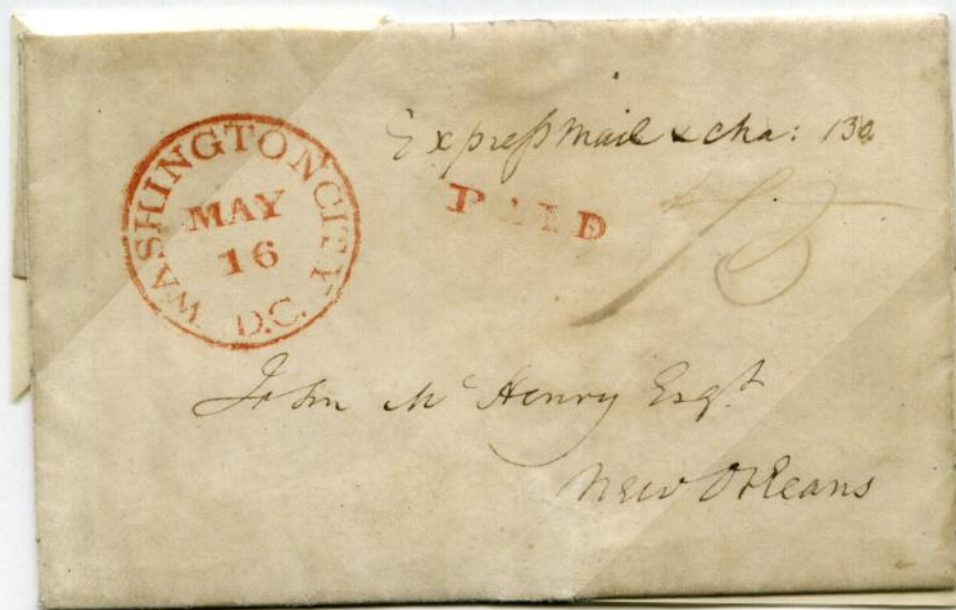 WASHINGTON CITY D.C.
MAY
16
Expreſs Mail & cha: 130
PAID
John McHenry Esqr
New Orleans